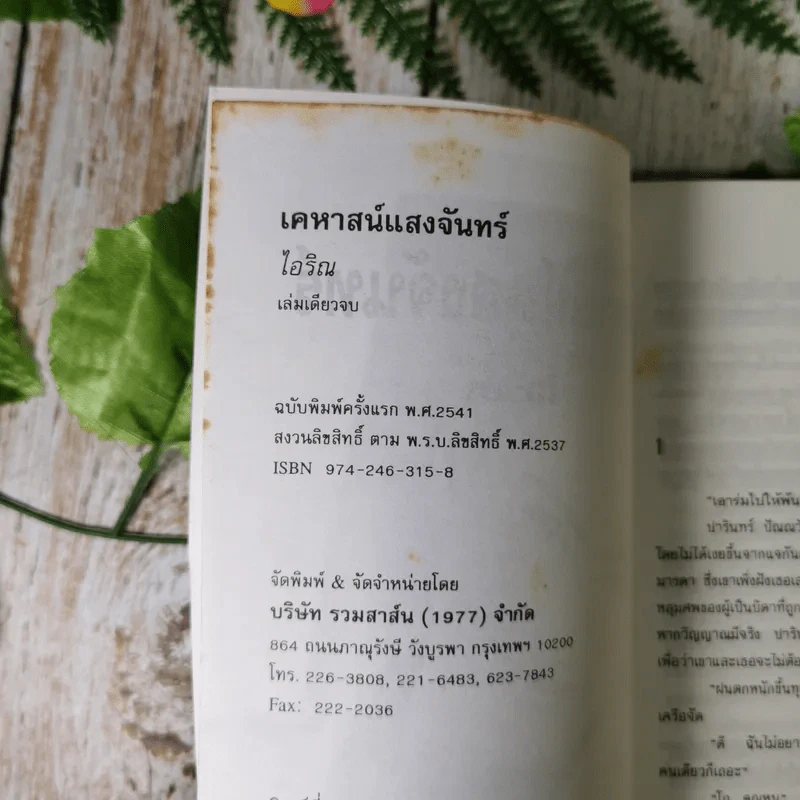 เคหาสน์แสงจันทร์
ไอริณ
เล่มเดียวจบ
ฉบับพิมพ์ครั้งแรก พ.ศ.2541
สงวนลิขสิทธิ์ ตาม พ.ร.บ.ลิขสิทธิ์ พ.ศ.2537
ISBN 974-246-315-8
จัดพิมพ์ & จัดจำหน่ายโดย
บริษัท รวมสาส์น (1977) จำกัด
864 ถนนภาณุรังษี วังบูรพา กรุงเทพฯ 10200
โทร. 226-3808, 221-6483, 623-7843
Fax: 222-2036
1
"เอาร่มไปให้พัน
ปารินทร์ ปัณณวั
โดยไม่ได้เงยขึ้นจากแจกัน
มารดา ซึ่งเขาเพิ่งฝังเธอ
หลุมศพของผู้เป็นบิดาที่ถูก
หากวิญญาณมีจริง ปาริน
เพื่อว่าเขาและเธอจะไม่ต้อ
"ฝนตกหนักขึ้นทุ
เครือจัด
"ดี ฉันไม่อยา
คนเดียวก็เถอะ"